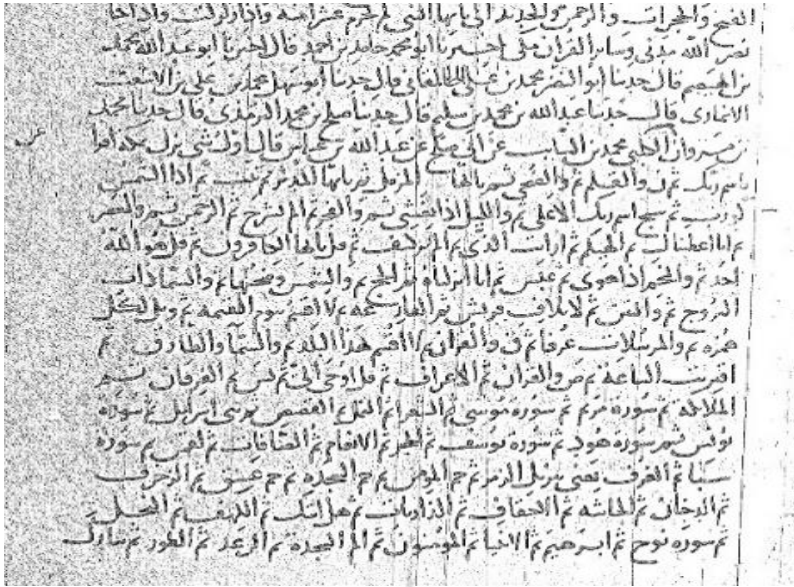 الفتح والحجرات والرحمن والحديد الى يايها النبي لم تحرم عشر امنه واذا زلزلت واذا جا
نصر الله مدنى وساير القران مكى اخبرنا ابو محمد حامد بن احمد قال اخبرنا ابو عبد الله محمد
بن الهيصم قال حدثنا ابو النضر محمد بن على الطالقانى قال حدثنا ابو سهل محمد بن على بن الاشعث
الانصارى قال حدثنا عبد الله بن محمد بن سليم قال حدثنا صلح بن محمد الترمذى قال حدثنا محمد
بن مروان الكلبى محمد بن السايب عن ابى صلح عن عبد الله بن عباس قال اول شى نزل بمكه اقرا
باسم ربك ثم ن والقلم ثم والضحى ثم يايها المزمل ثم يايها المدثر ثم تبت ثم اذا الشمس
كورت ثم سبح اسم ربك الاعلى ثم والليل اذا يغشى ثم والفجر ثم الم نشرح ثم الرحمن ثم والعصر
ثم انا اعطيناك ثم الهيكم ثم ارايت الذى ثم الم تر كيف ثم قل يايها الكافرون ثم قل هو الله
احد ثم والنجم اذا هوى ثم عبس ثم انا انزلناه ثم والشمس وضحيها ثم والسما ذات
البروج ثم والتين ثم لايلاف قريش ثم القارعه ثم لا اقسم بيوم القيمه ثم ويل لكل
همزه ثم والمرسلات عرفا ثم ق والقران ثم لا اقسم بهذا البلد ثم والسما والطارق ثم
اقتربت الساعه ثم ص والقران ثم الاعراف ثم قل اوحى الى ثم يس ثم الفرقان ثم
الملائكه ثم سوره مريم ثم سوره موسى ثم الشعرا ثم النمل ثم القصص ثم بنى اسرايل ثم سوره
يونس ثم سوره هود ثم سوره يوسف ثم الحجر ثم الانعام ثم الصافات ثم لقمن ثم سوره
سبا ثم الغرف يعنى تنزيل الزمر ثم حم المومن ثم حم السجده ثم حم عسق ثم الزخرف
ثم الدخان ثم الجاثيه ثم الاحقاف ثم الذاريات ثم هل اتيك ثم الكهف ثم النحل
ثم سوره نوح ثم ابرهيم ثم الانبيا ثم المومنون ثم الم السجدة ثم الرعد ثم الطور ثم تبارك